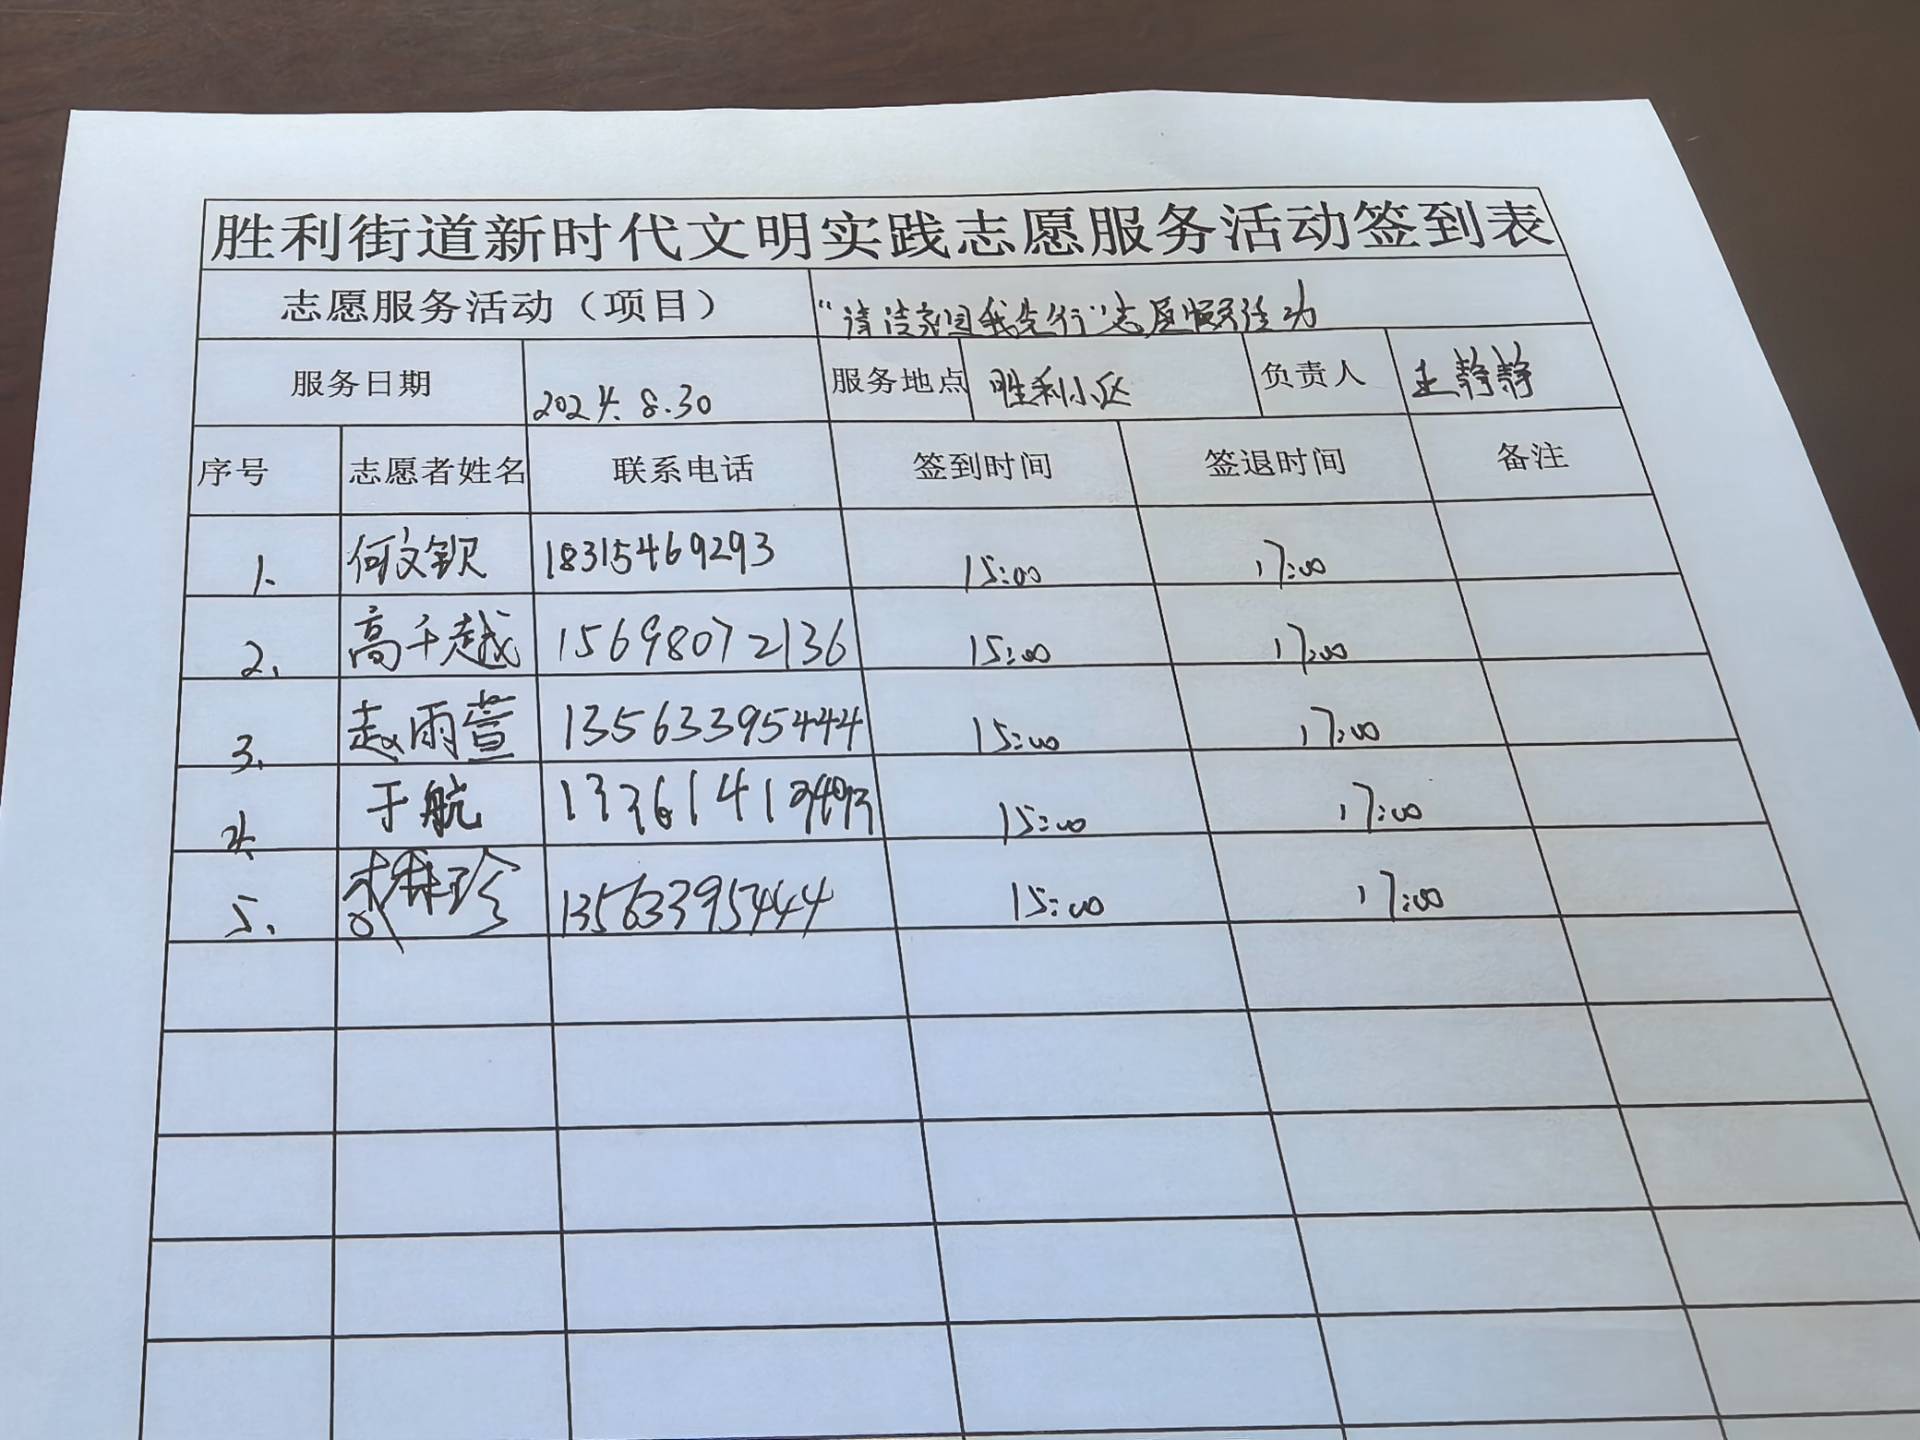 胜利街道新时代文明实践志愿服务活动签到表
志愿服务活动（项目） “清洁家园我先行”志愿服务活动
服务日期 2024.8.30 服务地点 胜利小区 负责人 王静静
序号 志愿者姓名 联系电话 签到时间 签退时间 备注
1. 何文钦 18315469293 15:00 17:00
2. 高千越 15698072136 15:00 17:00
3. 赵雨萱 13563395444 15:00 17:00
4. 于航 15:00 17:00
5. 13563395444 15:00 17:00